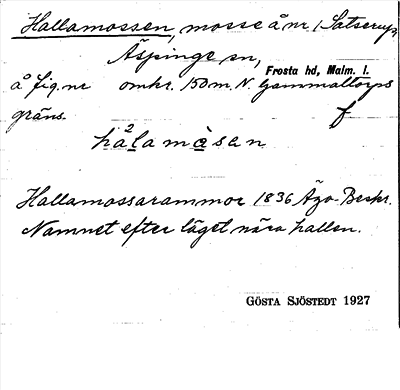 Hallamossen, mosse å nr 1 Satserup,
Äspinge sn,
Frosta hd, Malm. l.
å fig. nr omkr. 150 m. N. Gammaltorps
gräns. f
hala måsen
Hallamossarammor 1836 Ägo-Beskr.
Namnet efter läget nära hallen.
GÖSTA SJÖSTEDT 1927